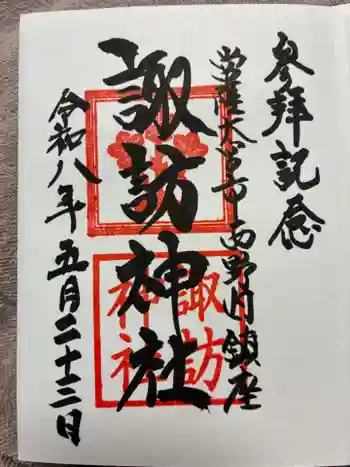 参拝記念
常陸大宮市西野内鎮座
諏訪神社
諏訪
神社
令和八年五月二十三日